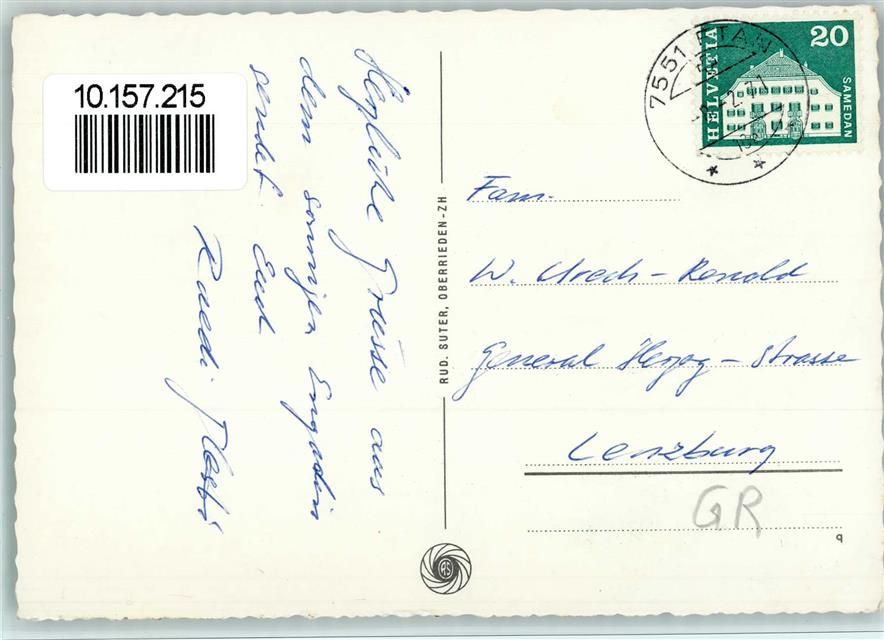 10.157.215
Herzliche Grüsse aus
dem sonnigen Engadin
sendet Euch
Ruedi
RUD. SUTER, OBERRIEDEN-ZH
7551 FTAN
-2.71
HELVETIA
20
SAMEDAN
Fam.
W. Urech-Renold
General Herzog-Strasse
Lenzburg
GR
q